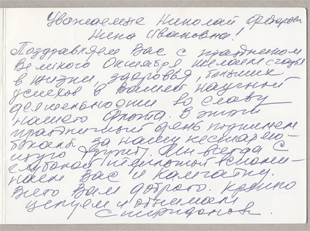 Уважаемые Николай Федорович
Нина Ивановна!
Поздравляем Вас с праздником
Великого Октября желаем счастья
в жизни, здоровья, больших
успехов в Вашей научной
деятельности во славу
нашего флота. В этот
праздничный день поднимем
бокалы за нашу нестарею-
щую дружбу. Мы всегда с
глубокой теплотой вспоми-
наем Вас и Камчатку.
Всего Вам доброго. Крепко
целуем и обнимаем
Спиридонов.